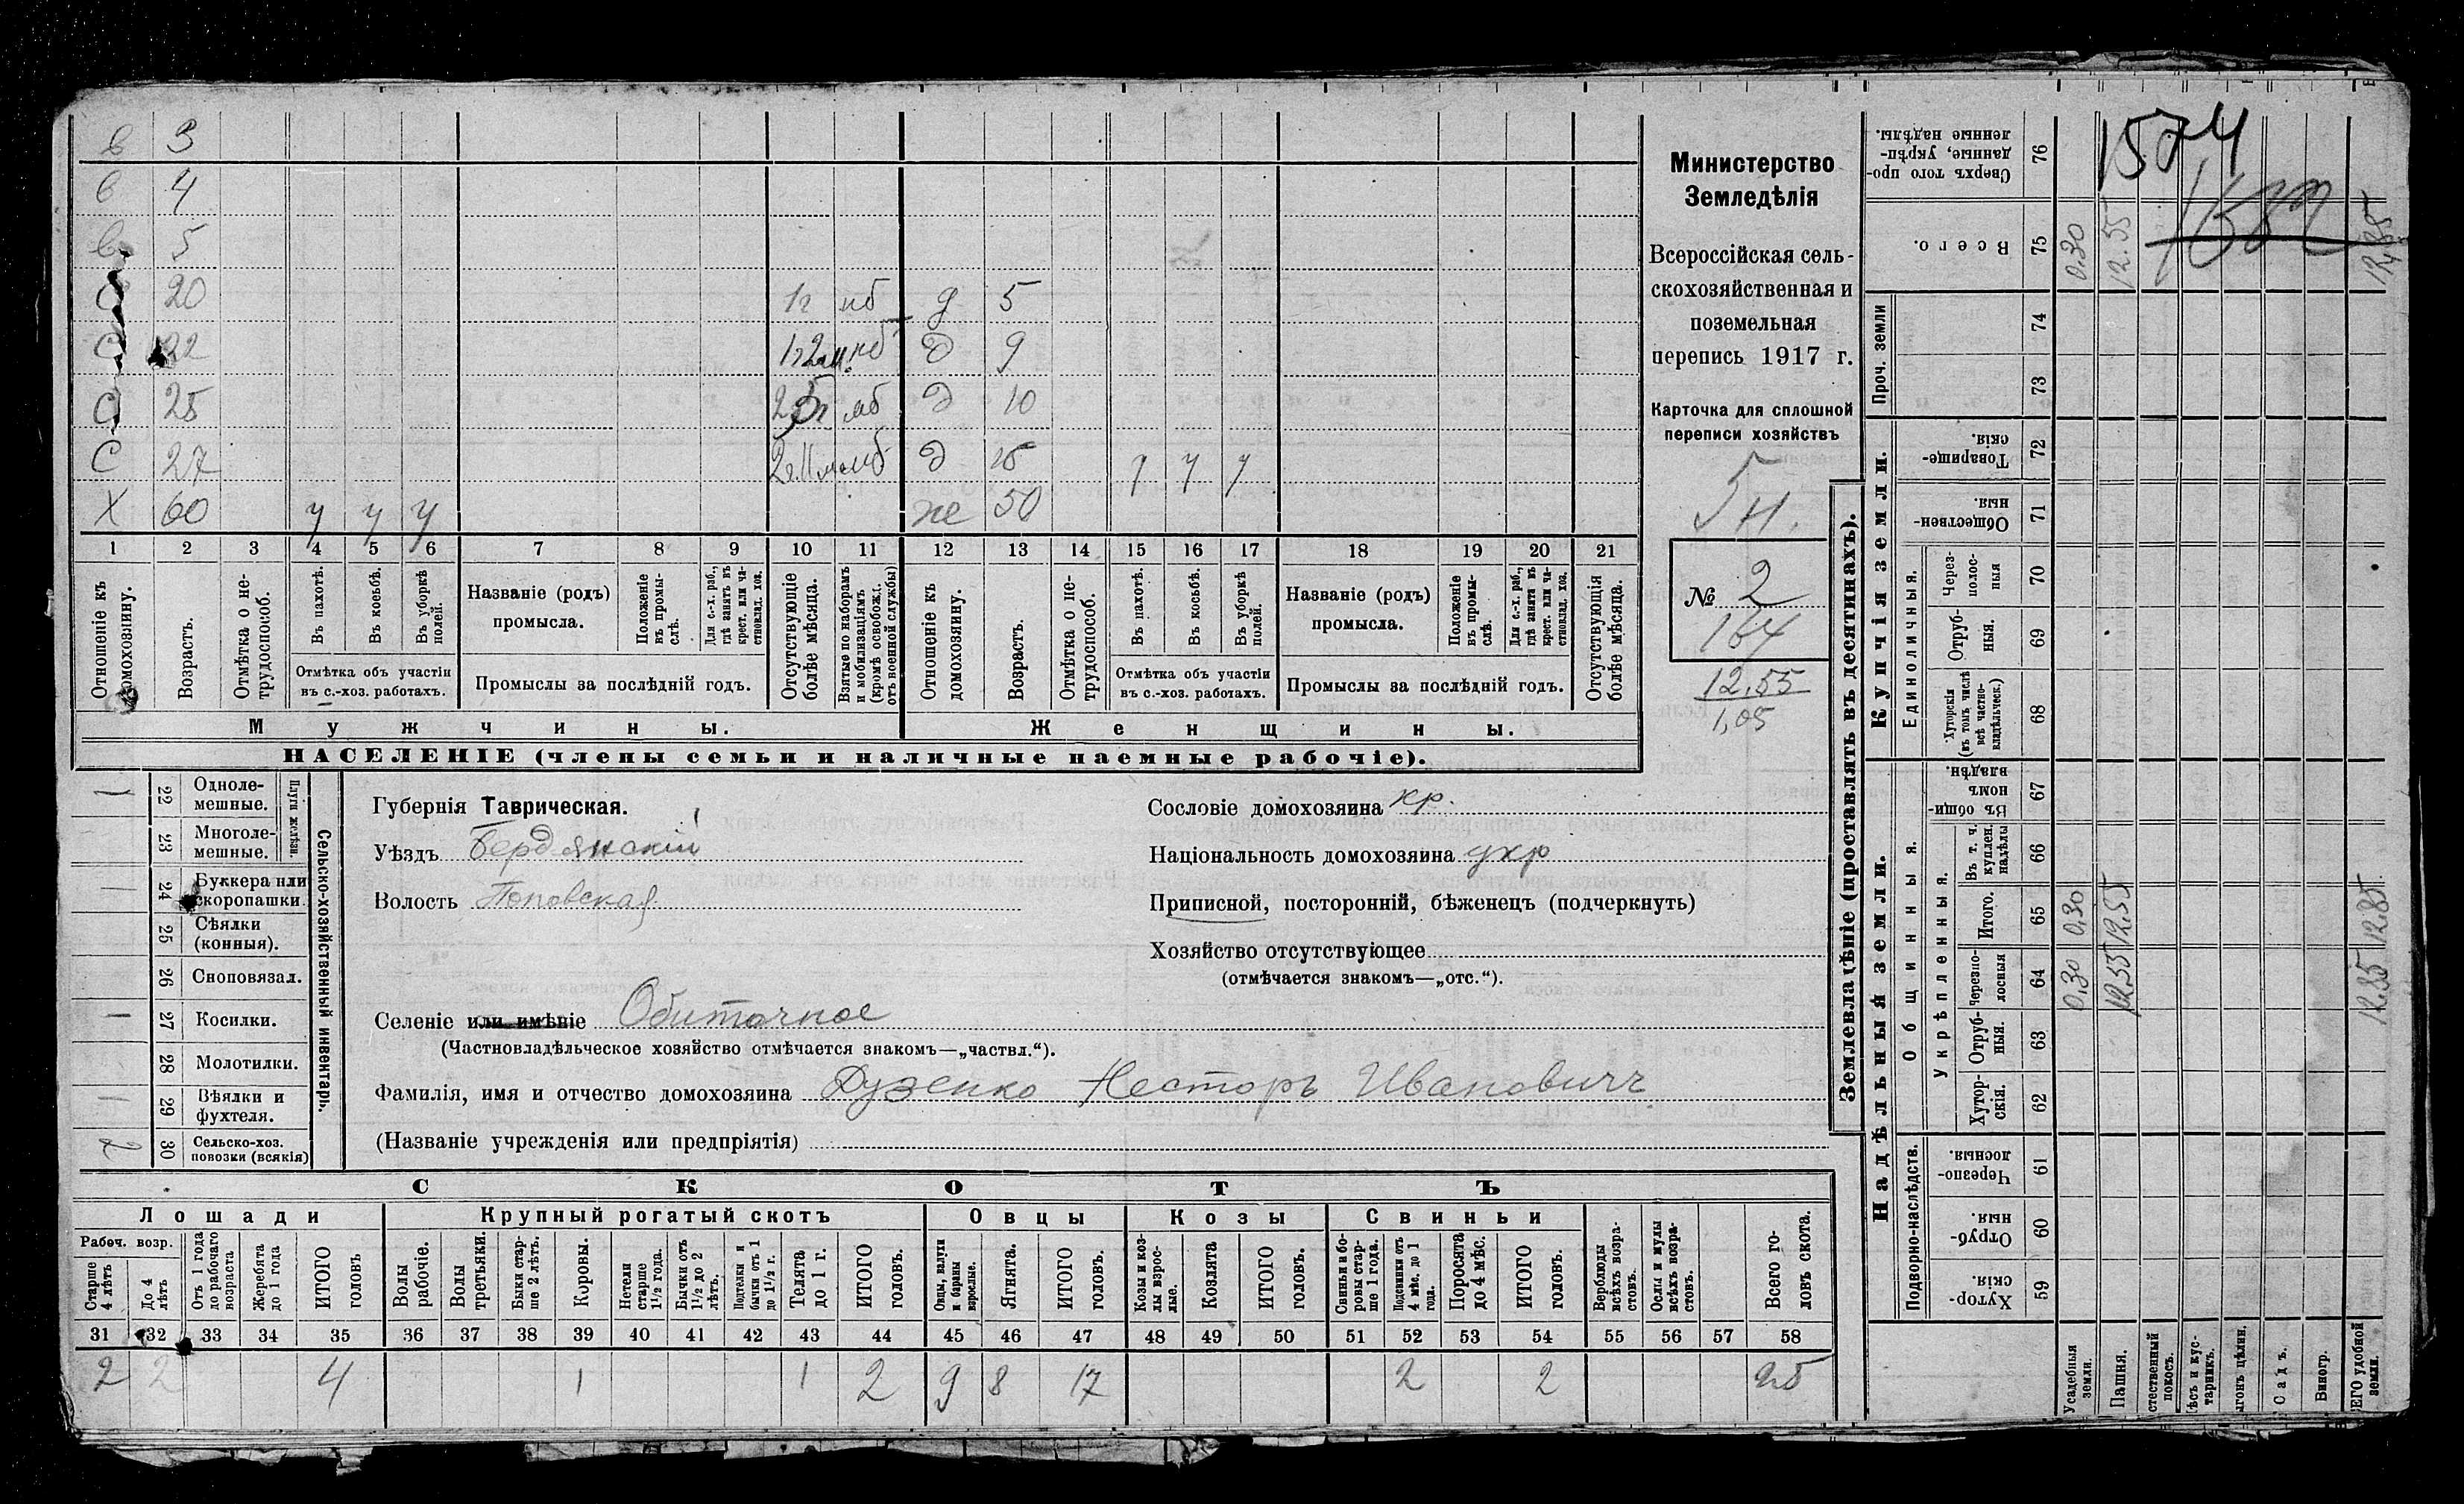 в 3
в 4
в 5
С 20 1г мб д 5
С 22 1г2м. мб д 9
С 25 мб д 10
С 27 2г.11м мб д 15 у у у
Х 60 у у у же 50
1 2 3 4 5 6 7 8 9 10 11 12 13 14 15 16 17 18 19 20 21
Отношеніе къ домохозяину.
Возрастъ.
Отмѣтка о не-
трудоспособ.
Въ пахотѣ.
Въ косьбѣ.
Въ уборкѣ
полей.
Отмѣтка объ участіи
въ с.-хоз. работахъ.
Названіе (родъ)
промысла.
Положеніе
въ промы-
слѣ.
Для с.-х. раб.,
гдѣ занятъ въ
крест. или ча-
стновлад. хоз.
Промыслы за послѣдній годъ.
Отсутствующіе
болѣе мѣсяца.
Взятые по наборамъ
и мобилизаціямъ
(кромѣ освобожд.
отъ военной службы)
Отношеніе къ
домохозяину.
Возрастъ.
Отмѣтка о не-
трудоспособ.
Въ пахотѣ.
Въ косьбѣ.
Въ уборкѣ
полей.
Отмѣтка объ участіи
въ с.-хоз. работахъ.
Названіе (родъ)
промысла.
Положеніе
въ промы-
слѣ.
Для с.-х. раб.,
гдѣ занята въ
крест. или ча-
стновлад. хоз.
Промыслы за послѣдній годъ.
Отсутствующія
болѣе мѣсяца.
Мужчины.
Женщины.
НАСЕЛЕНІЕ (члены семьи и наличные наемные рабочіе).
Министерство
Земледѣлія
Всероссійская сель-
скохозяйственная и
поземельная
перепись 1917 г.
Карточка для сплошной
переписи хозяйствъ
5 н.
№ 2
164
12,55
1,05
1 22 Одноле-
мешные.
23 Многоле-
мешные.
Плуги желѣзн.
1 24 Буккера или
скоропашки.
25 Сѣялки
(конныя).
26 Сноповязал.
1 27 Косилки.
28 Молотилки.
1 29 Вѣялки и
фухтеля.
2 30 Сельско-хоз.
повозки (всякія)
Сельско-хозяйственный инвентарь.
Губернія Таврическая.
Уѣздъ Бердянскій
Волость Поповская
Сословіе домохозяина кр.
Національность домохозяина укр
Приписной, посторонній, бѣженецъ (подчеркнуть)
Хозяйство отсутствующее
(отмѣчается знакомъ—„отс.“).
Селеніе или имѣніе Обиточное
(Частновладѣльческое хозяйство отмѣчается знакомъ—„частвл.“).
Фамилія, имя и отчество домохозяина Дузенко Несторъ Ивановичъ
(Названіе учрежденія или предпріятія)
СКОТЪ
Лошади
Крупный рогатый скотъ
Овцы
Козы
Свиньи
Рабоч. возр.
Старше
4 лѣтъ
До 4
лѣтъ
Отъ 1 года
до рабочаго
возраста
Жеребята
до 1 года
ИТОГО
головъ
Волы
рабочіе.
Волы
третьяки.
Быки стар-
ше 2 лѣтъ.
Коровы.
Нетели
старше
1½ года.
Бычки отъ
1½ до 2
лѣтъ.
Подтелки и
бычки отъ 1
до 1½ г.
Телята
до 1 г.
ИТОГО
головъ.
Овцы, валухи
и бараны
взрослые.
Ягнята.
ИТОГО
головъ.
Козы и коз-
лы взрос-
лые.
Козлята
ИТОГО
головъ.
Свиньи и бо-
ровы стар-
ше 1 года.
Подсвинки отъ
4 мѣс. до 1
года.
Поросята
до 4 мѣс.
ИТОГО
головъ.
Верблюды
всѣхъ возра-
стовъ.
Ослы и мулы
всѣхъ возра-
стовъ.
Всего го-
ловъ скота.
31 32 33 34 35 36 37 38 39 40 41 42 43 44 45 46 47 48 49 50 51 52 53 54 55 56 57 58
2 2 4 1 1 2 9 8 17 2 2 25
Землевладѣніе (проставлять въ десятинахъ).
Надѣльныя земли.
Купчія земли.
Проч. земли
Подворно-наслѣдств.
Общинныя.
Укрѣпленныя.
Единоличныя.
Сверхъ того про-
данные, укрѣп-
ленные надѣлы.
76
Всего.
75
74
73
Товарище-
скія.
72
Обществен-
ныя.
71
Через-
полос-
ныя
70
Отруб-
ныя.
69
Хуторскія
(въ томъ числѣ
всѣ частно-
владѣльческ.)
68
Въ общи-
номъ
владѣн.
67
Въ т. ч.
куплен.
надѣлы
66
Итого.
65
Черезпо-
лосныя
64
Отруб-
ныя.
63
Хутор-
скія.
62
Черезпо-
лосныя.
61
Отруб-
ныя.
60
Хутор-
скія.
59
1574
1582
0,30 12.55 12,85
0,30 12,55 12,85
0,30 12,55 12,85
Усадебныя
земли.
Пашня.
стественный
покосъ.
ѣсъ и кус-
тарникъ.
ыгонъ цѣлин.
Садъ.
Виногр.
ЕГО удобной
земли.